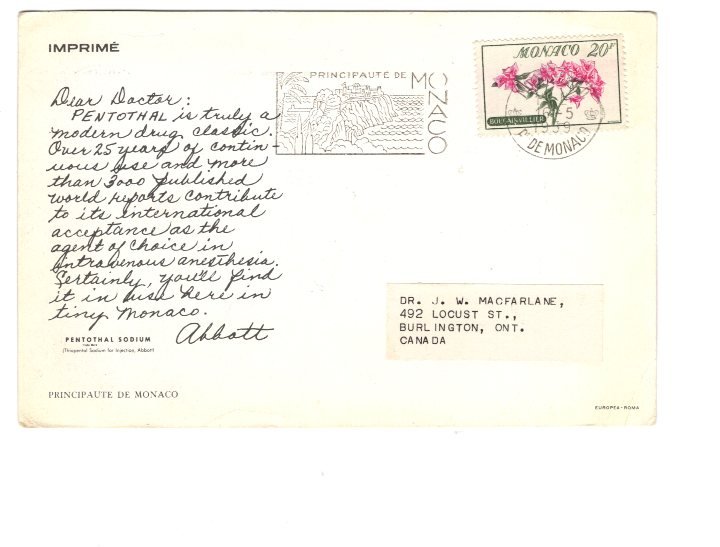 IMPRIMÉ
Dear Doctor:
PENTOTHAL is truly a
modern drug classic.
Over 25 years of contin-
uous use and more
than 3000 published
world reports contribute
to its international
acceptance as the
agent of choice in
intravenous anesthesia.
Certainly, you'll find
it in use here in
tiny Monaco.
Abbott
PENTOTHAL SODIUM
(Thiopental Sodium for Injection, Abbott)
PRINCIPAUTE DE MONACO
PRINCIPAUTÉ DE
MONACO
MONACO 20F
BOUGAINVILLIER
5
1959
DE MONACO
DR. J. W. MACFARLANE,
492 LOCUST ST.,
BURLINGTON, ONT.
CANADA
EUROPEA-ROMA